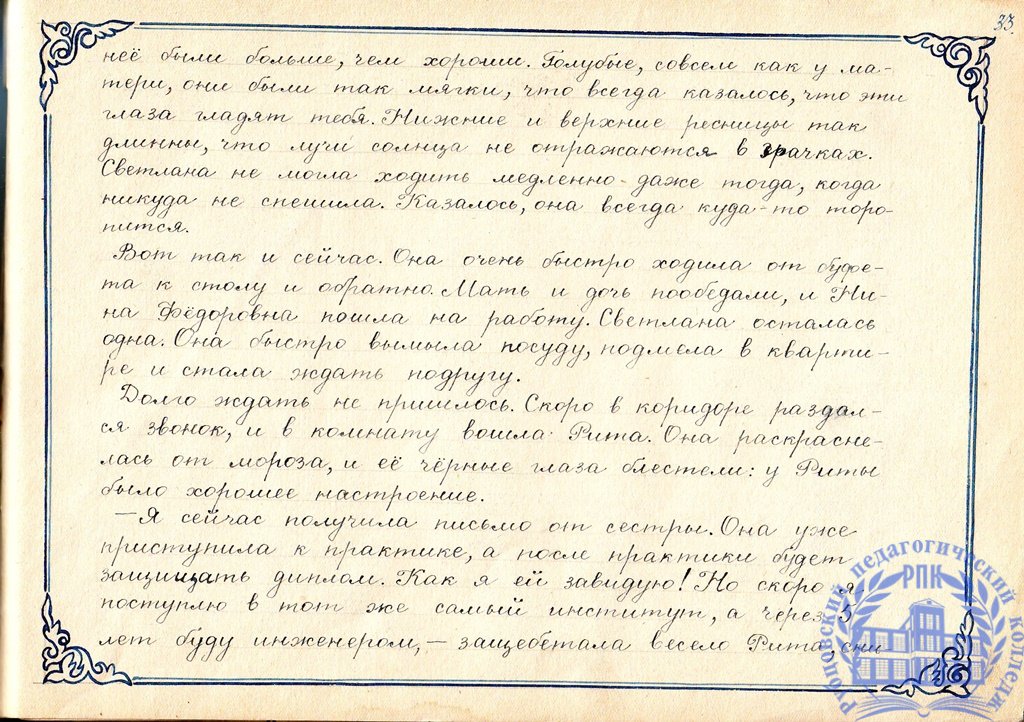 33.
неё были больше, чем хороши. Голубые, совсем как у ма-
тери, они были так мягки, что всегда казалось, что эти
глаза гладят тебя. Нижние и верхние ресницы так
длинны, что лучи солнца не отражаются в зрачках.
Светлана не могла ходить медленно - даже тогда, когда
никуда не спешила. Казалось, она всегда куда-то торо-
пится.
Вот так и сейчас. Она очень быстро ходила от буфе-
та к столу и обратно. Мать и дочь пообедали, и Ни-
на Фёдоровна пошла на работу. Светлана осталась
одна. Она быстро вымыла посуду, подмела в кварти-
ре и стала ждать подругу.
Долго ждать не пришлось. Скоро в коридоре раздал-
ся звонок, и в комнату вошла Рита. Она раскрасне-
лась от мороза, и её чёрные глаза блестели: у Риты
было хорошее настроение.
— Я сейчас получила письмо от сестры. Она уже
приступила к практике, а после практики будет
защищать диплом. Как я ей завидую! Но скоро я
поступлю в тот же самый институт, а через 5
лет буду инженером, — защебетала весело Рита, сни-
педагогический колледж
РПК